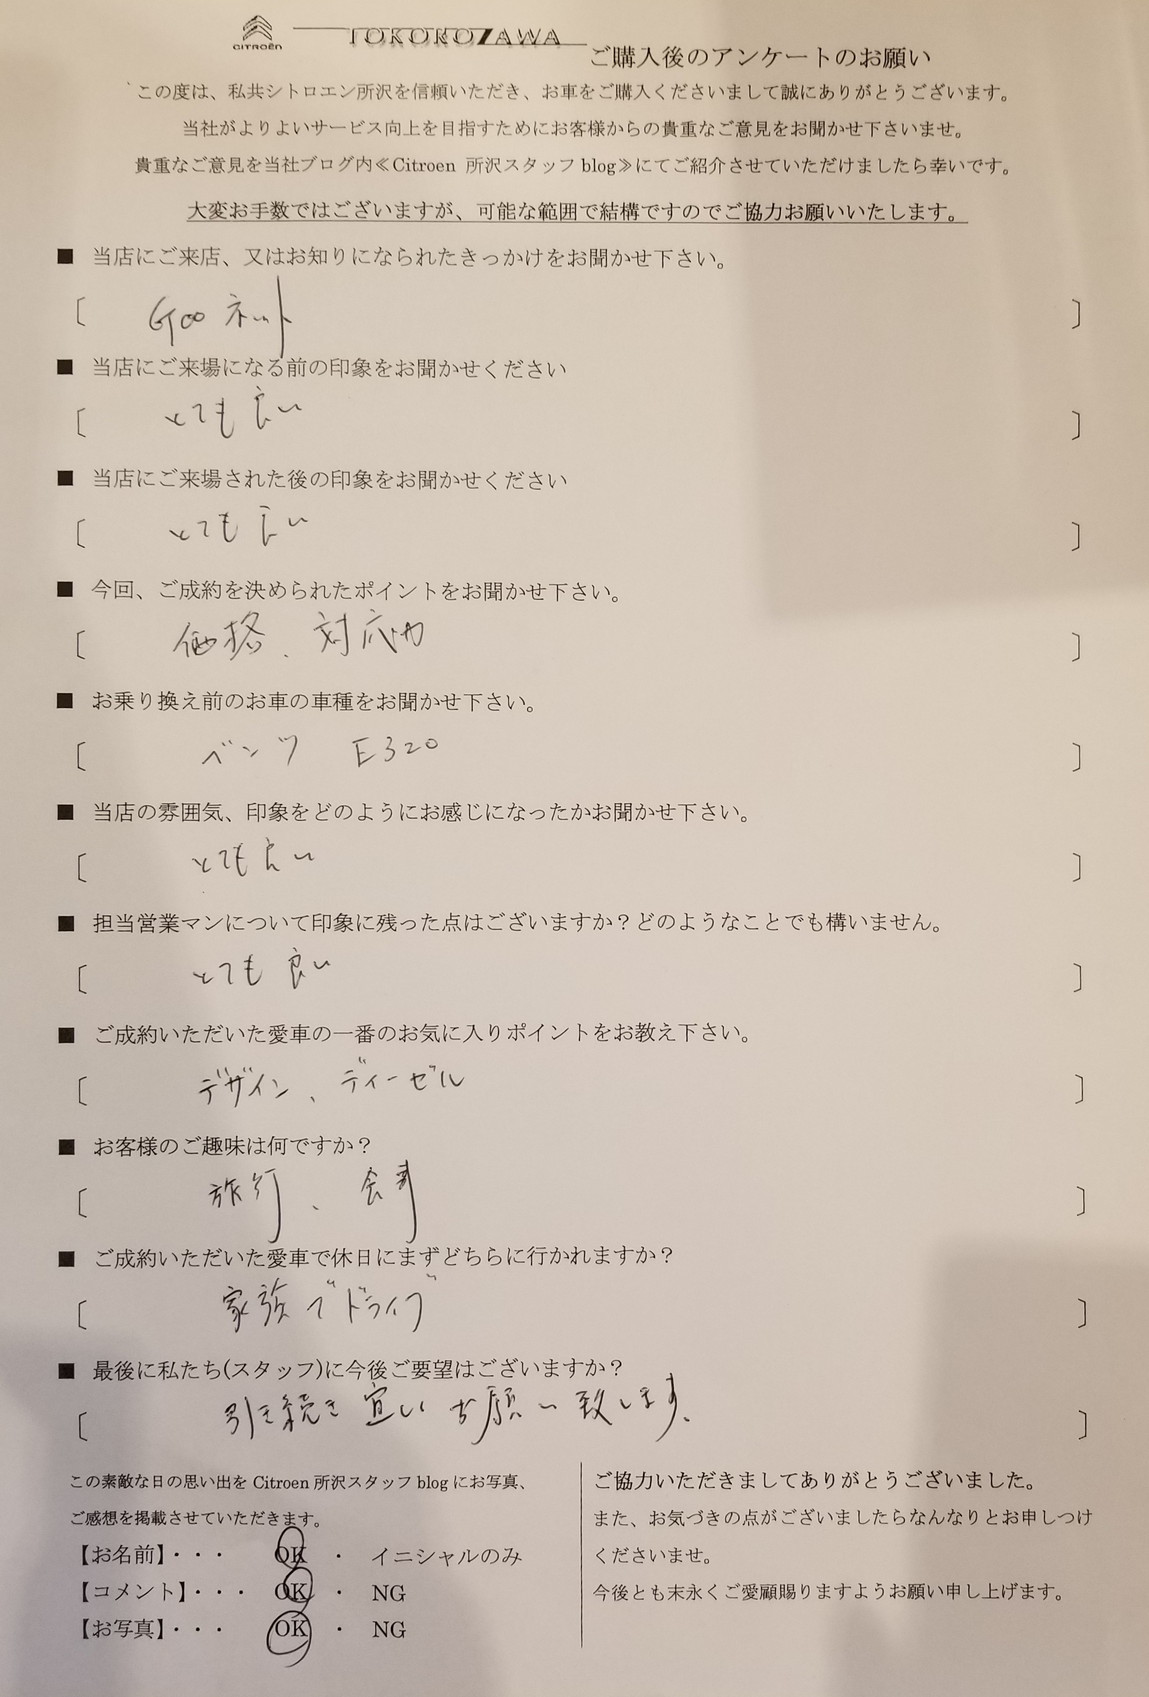 CITROËN TOKOROZAWA ご購入後のアンケートのお願い
この度は、私共シトロエン所沢を信頼いただき、お車をご購入くださいまして誠にありがとうございます。
当社がよりよいサービス向上を目指すためにお客様からの貴重なご意見をお聞かせ下さいませ。
貴重なご意見を当社ブログ内≪Citroen 所沢スタッフ blog≫にてご紹介させていただけましたら幸いです。
大変お手数ではございますが、可能な範囲で結構ですのでご協力お願いいたします。
■ 当店にご来店、又はお知りになられたきっかけをお聞かせ下さい。
〔 Goo ネット 〕
■ 当店にご来場になる前の印象をお聞かせください
〔 とても良い 〕
■ 当店にご来場された後の印象をお聞かせください
〔 とても良い 〕
■ 今回、ご成約を決められたポイントをお聞かせ下さい。
〔 価格、対応力 〕
■ お乗り換え前のお車の車種をお聞かせ下さい。
〔 ベンツ E320 〕
■ 当店の雰囲気、印象をどのようにお感じになったかお聞かせ下さい。
〔 とても良い 〕
■ 担当営業マンについて印象に残った点はございますか？どのようなことでも構いません。
〔 とても良い 〕
■ ご成約いただいた愛車の一番のお気に入りポイントをお教え下さい。
〔 デザイン、ディーゼル 〕
■ お客様のご趣味は何ですか？
〔 旅行、食事 〕
■ ご成約いただいた愛車で休日にまずどちらに行かれますか？
〔 家族でドライブ 〕
■ 最後に私たち(スタッフ)に今後ご要望はございますか？
〔 引き続き宜しくお願い致します。 〕
この素敵な日の思い出を Citroen 所沢スタッフ blog にお写真、
ご感想を掲載させていただきます。
【お名前】・・・ OK ・ イニシャルのみ
【コメント】・・・ OK ・ NG
【お写真】・・・ OK ・ NG
ご協力いただきましてありがとうございました。
また、お気づきの点がございましたらなんなりとお申しつけ
くださいませ。
今後とも末永くご愛顧賜りますようお願い申し上げます。